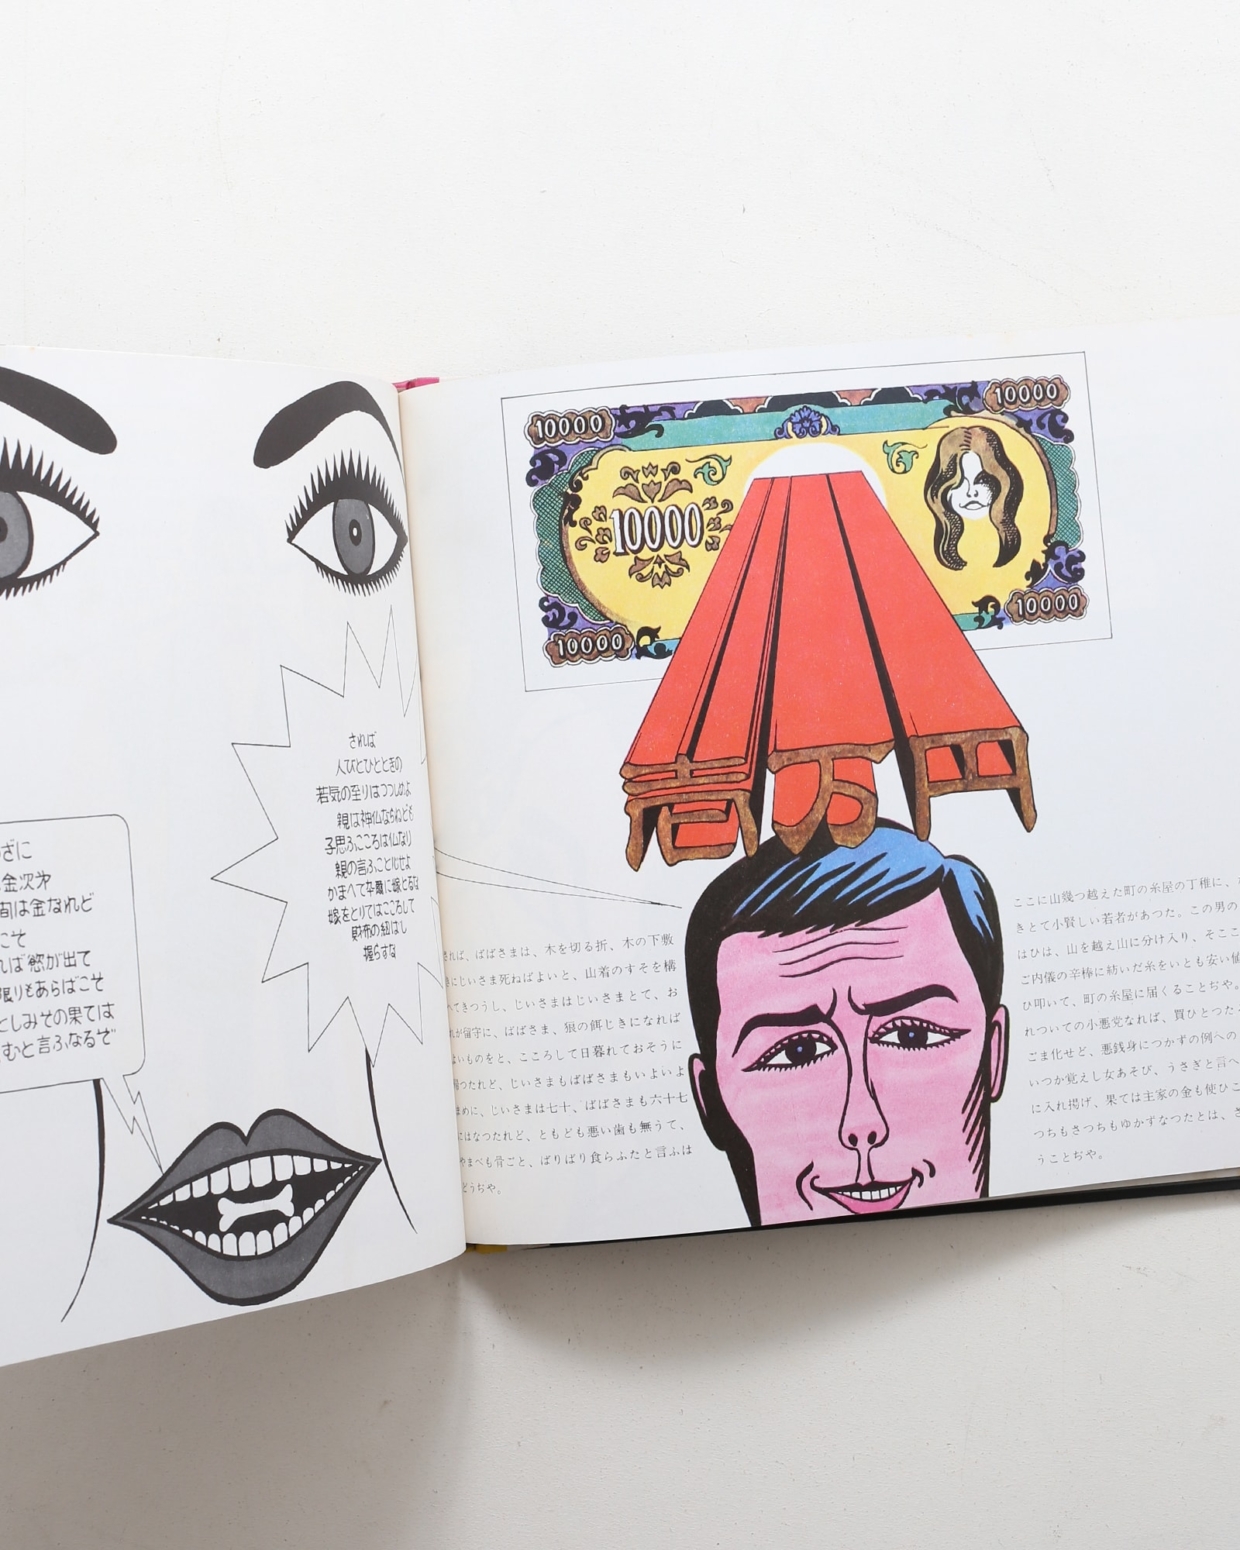 ざに
金次第
間は金なれど
こそ
れば慾が出て
限りもあらばこそ
としみその果ては
むと言ふなるぞ
されば
人びとひとときの
若気の至りはつつしめよ
親は神仏ならねども
子思ふこころは仏なり
親の言ふこと化せよ
かまへて
嫁をとりてはこころして
財布の紐はし
握らすな
10000
10000
10000
10000
10000
壱万円
れば、ばばさまは、木を切る折、木の下敷
にじいさま死ねばよいと、山着のすそを構
てきつうし、じいさまはじいさまとて、お
が留守に、ばばさま、狼の餌じきになれば
よいものをと、こころして日暮れておそうに
つたれど、じいさまもばばさまもいよいよ
まめに、じいさまは七十、ばばさまも六十七
にはなつたれど、ともども悪い歯も無うて、
やまべも骨ごと、ばりばり食らふたと言ふは
どうぢや。
ここに山幾つ越えた町の糸屋の丁稚に、
きとて小賢しい若者があつた。この男の
はひは、山を越え山に分け入り、そここ
ご内儀の辛棒に紡いだ糸をいとも安い値
ひ叩いて、町の糸屋に届くることぢや。
れついての小悪党なれば、買ひとつた
ごま化せど、悪銭身につかずの例への
いつか覚えし女あそび、うさぎと言へ
に入れ揚げ、果ては主家の金も使ひこ
つちもさつちもゆかずなつたとは、さ
うことぢや。